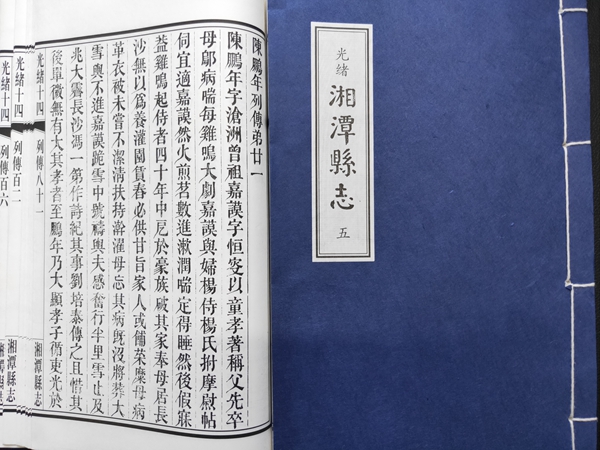 光緒
湘潭縣志
五
陳鵬年列傳弟廿一
陳鵬年字滄洲曾祖嘉謨字恒麥以童孝著稱父先卒
母鄔病喘每雞鳴大劇嘉謨與婦楊侍楊氏拊摩尉帖
伺宜適嘉謨然火煎茗數進漱潤喘定得睡然後假寐
益雞鳴起侍者四十年中戹於豪族破其家奉母居長
沙無以爲養灌園賃舂必供甘旨家人或餔菜糜母病
革衣被未嘗不潔清扶持澣濯母忘其病旣沒將葬大
雪輿不進嘉謨跪雪中號禱輿夫感奮行半里雪止及
兆大霽長沙馮一第作詩紀其事劉培泰傳之且惜其
後單微無有大其孝者至鵬年乃大顯孝子循吏光於
光緒十四
列傳八十一
湘潭縣志
光緒十四
列傳百二
光緒十四
列傳百六
湘潭縣志